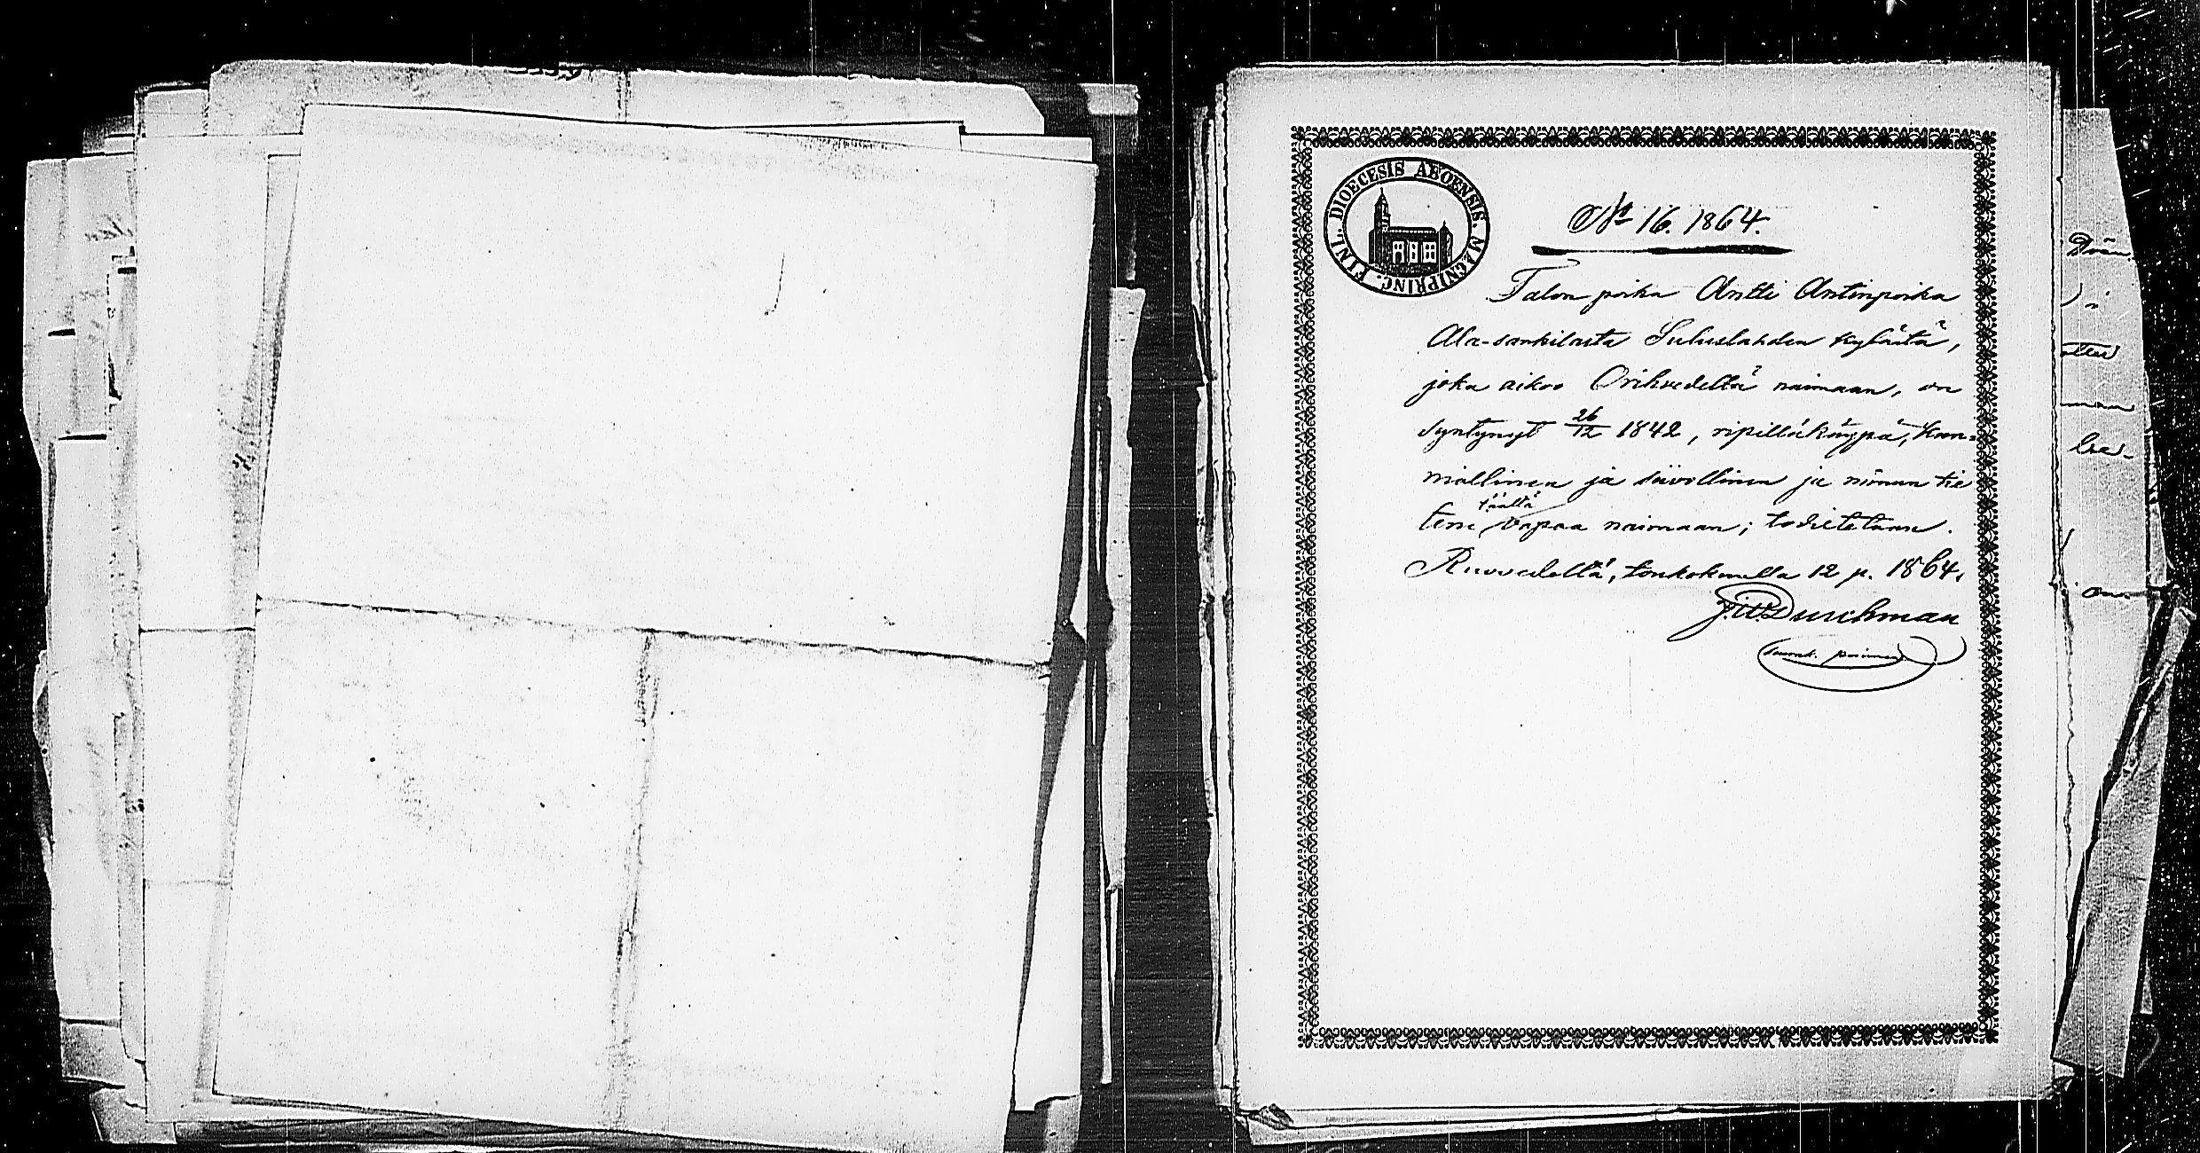 DIOECESIS ABOENSIS. MAGNIPRINC. FINL.
№ 16. 1864.
Talon poika Antti Antinpoika
Ala-sankilasta Suluslahden kylästä,
joka aikoo Orihvedellä naimaan, on
syntynyt 26/12 1842, ripilläkäypä, kun-
niallinen ja siivollinen ja minun tie
täältä
teni vapaa naimaan; todistetaan.
Ruovedellä, toukokuulla 12 p. 1864.
J. W. Durchman